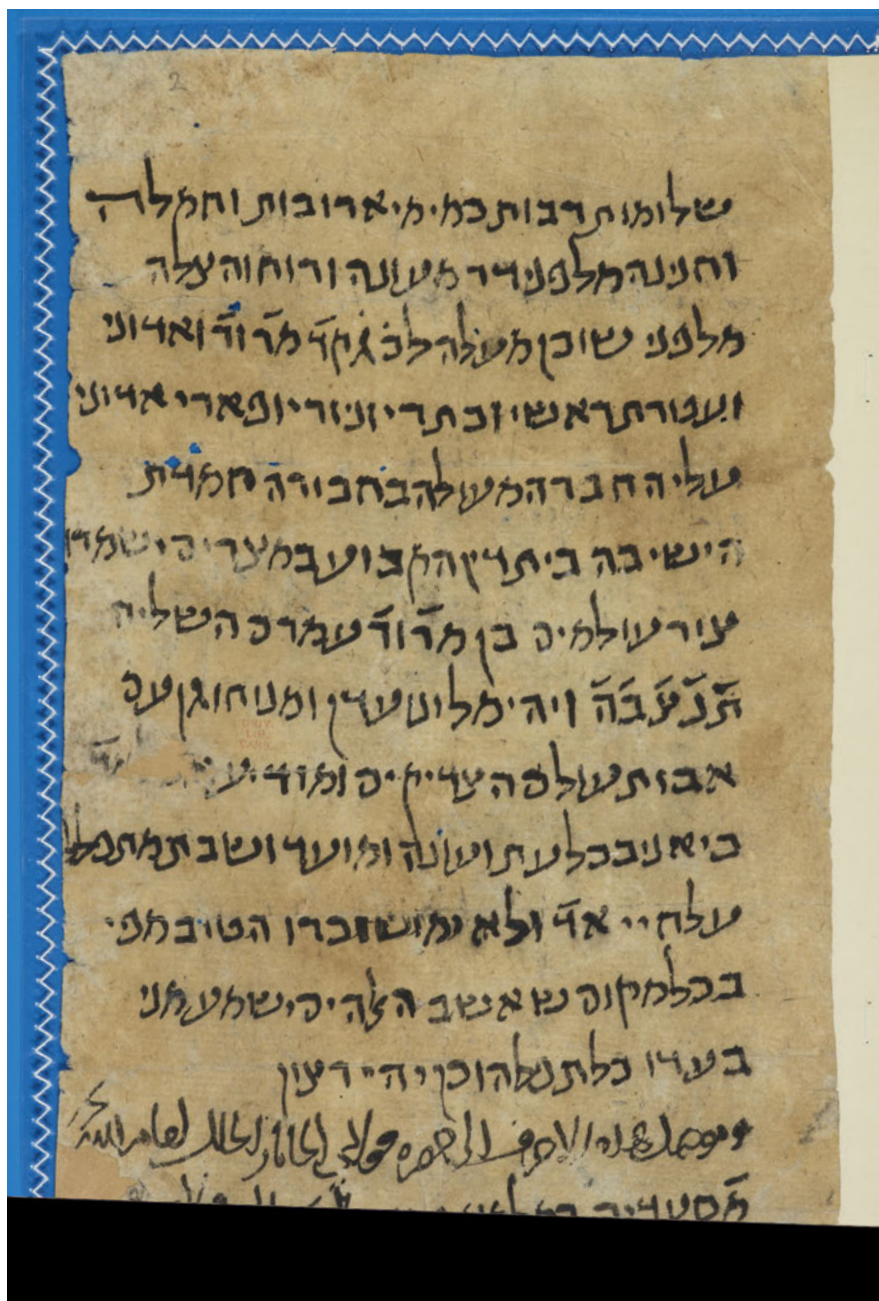 2
שלומות רבות כמימי ארובות וחמלה
וחנינה מלפני דר מעונה ורוח והצלה
מלפני שוכן מעלה לכ̇ ג̇ק̇ ד̇ מ̇ר̇ ור̇ וד̇ ואדוני
ועטורת ראשי וכתרי ונזרי ופארי אדוני
עליה חברה מעולה בחבורה חמדת
הישיבה ביתרון הקבוע במצרים ישמרו
צור עולמים בן מ̇ר̇ ור̇ עמרם השליח
ת̇נ̇צ̇ב̇ה̇ ויהי מלינו עדן ומנוחו גן עם
אבות עולם הצדיקים ומודיע
כי אני בכל עת ועונה ומועד ושבת מתפלל
על חיי אד̇ ולא ימוש זכרו הטוב מפי
בכל מקום שאשב האלהים ישמע מני
בעדו כל תפלה וכן יהי רצון